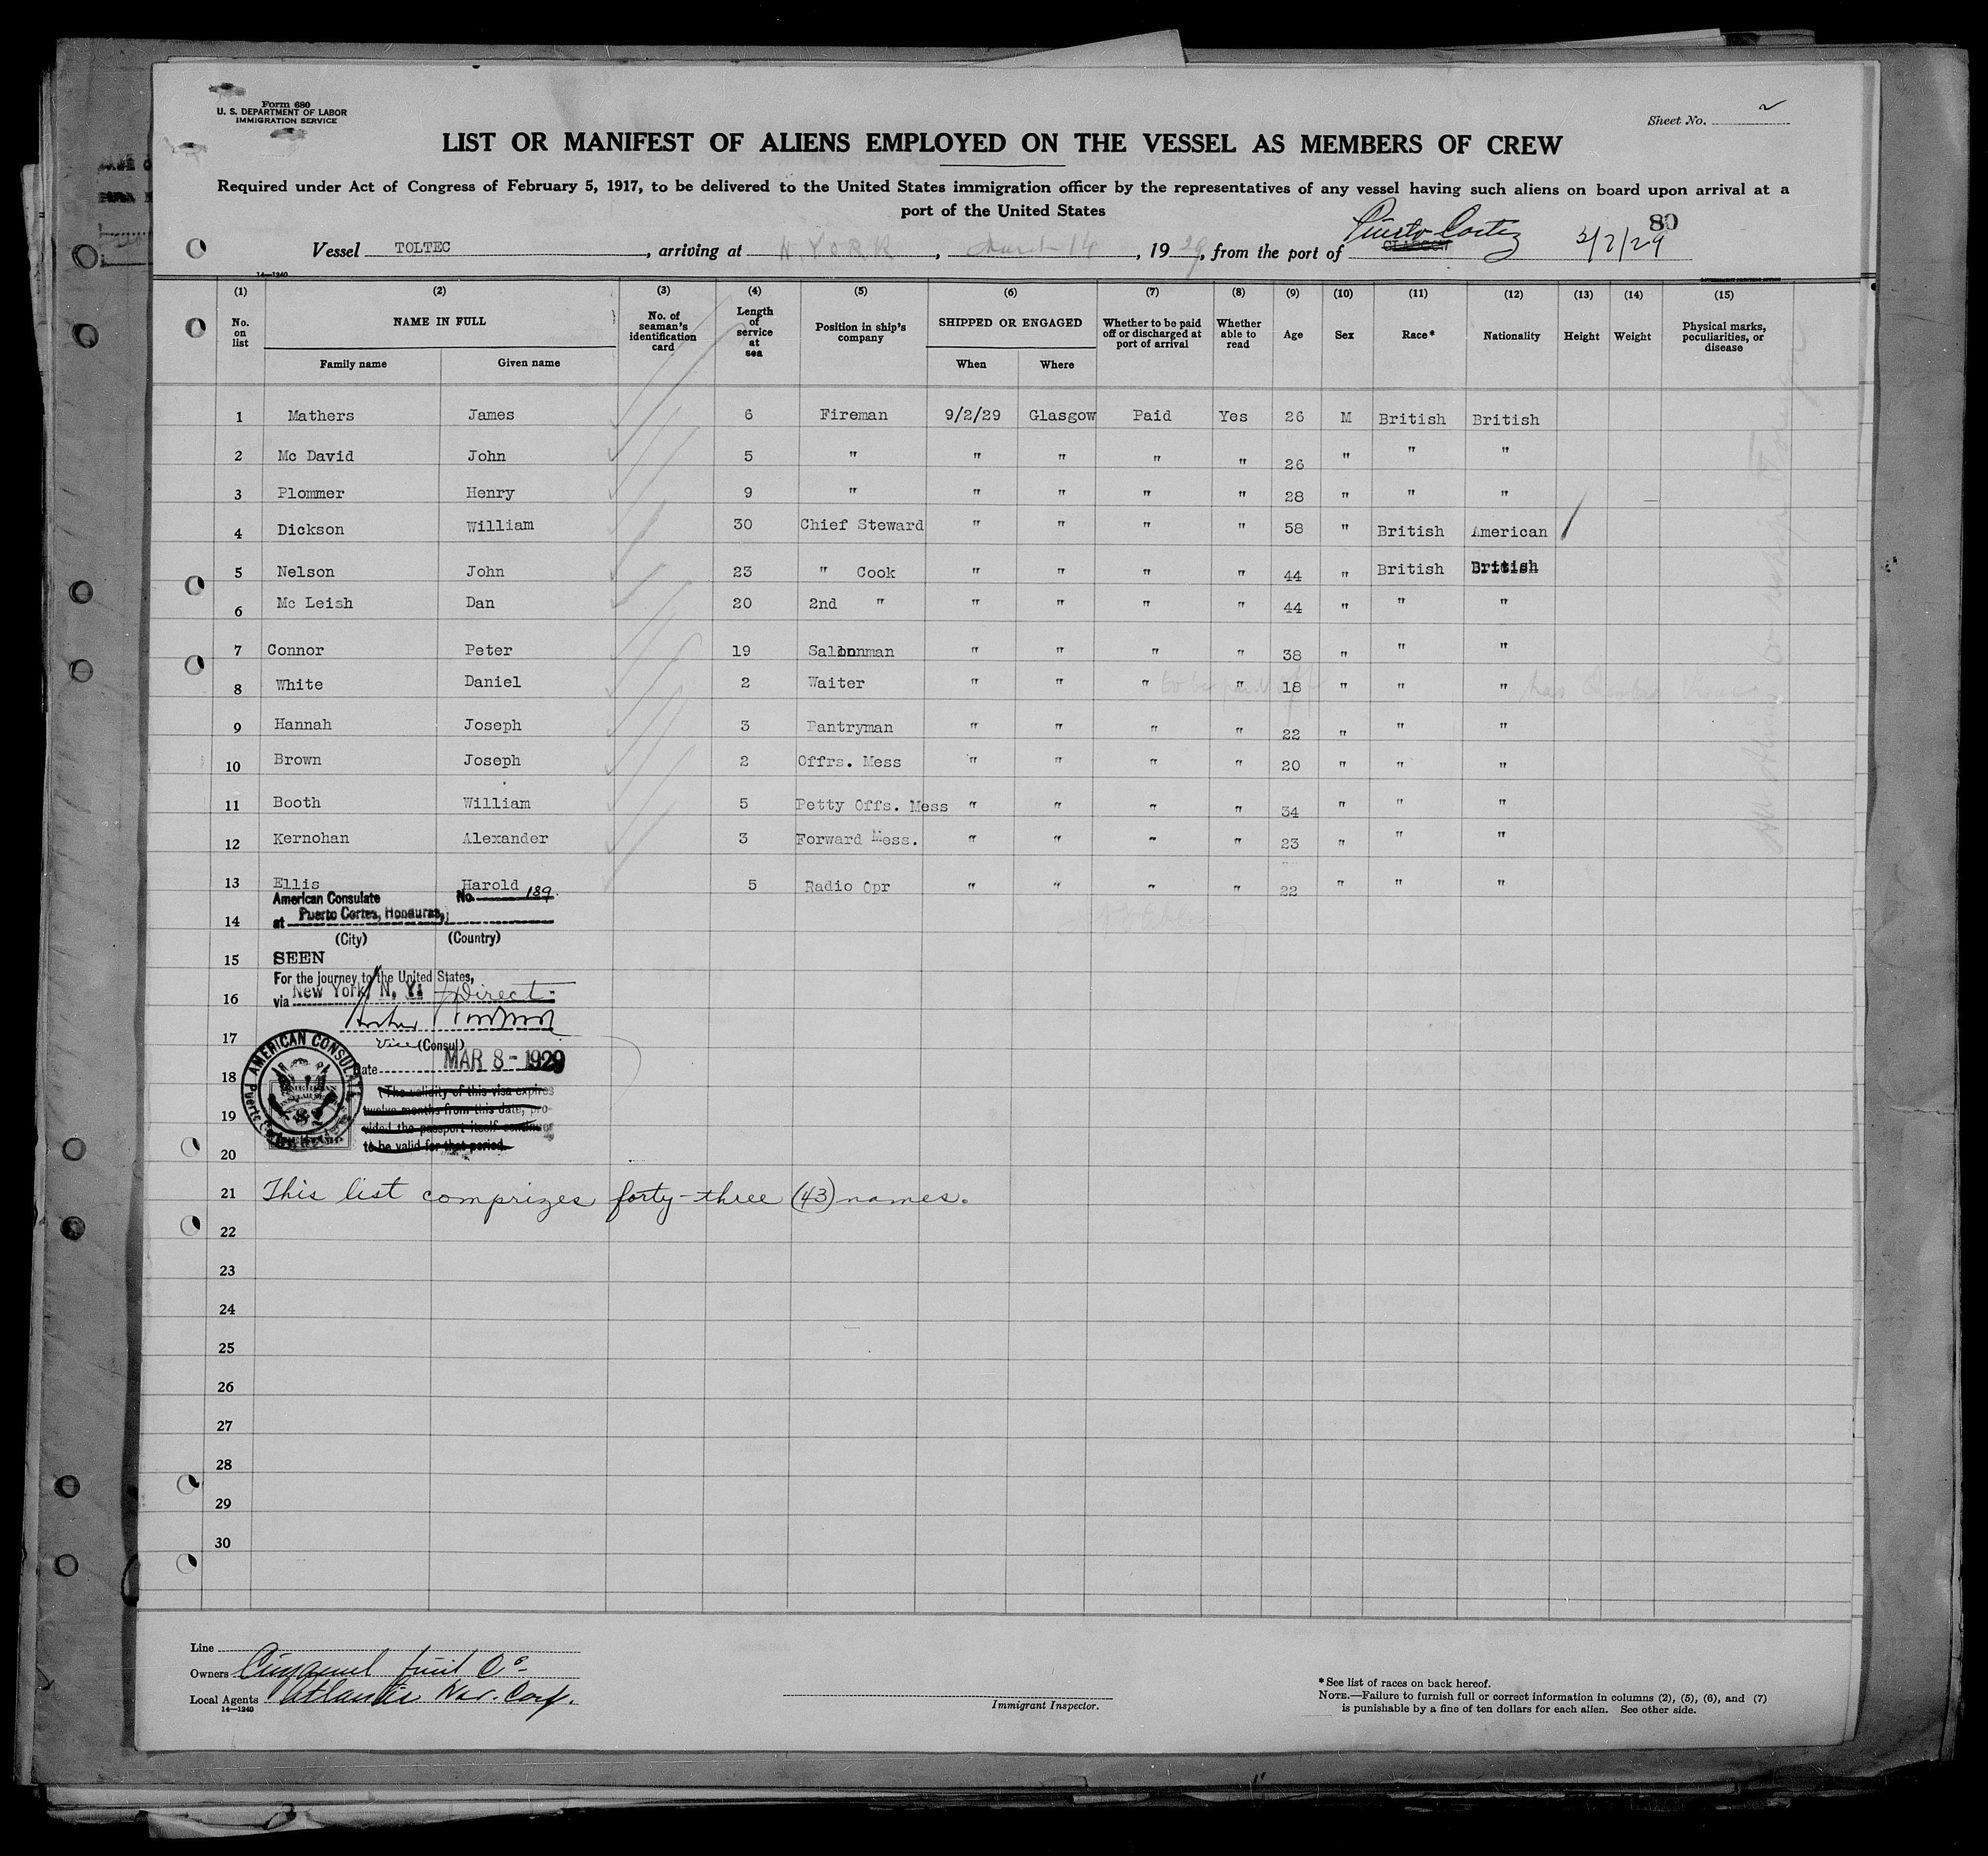 Form 680
U. S. DEPARTMENT OF LABOR
IMMIGRATION SERVICE
Sheet No. 2
LIST OR MANIFEST OF ALIENS EMPLOYED ON THE VESSEL AS MEMBERS OF CREW
Required under Act of Congress of February 5, 1917, to be delivered to the United States immigration officer by the representatives of any vessel having such aliens on board upon arrival at a
port of the United States
80
Vessel TOLTEC, arriving at N. YORK, March 14, 1929, from the port of GLASGOW Puerto Cortez 3/7/29
14—1240
(1) (2) (3) (4) (5) (6) (7) (8) (9) (10) (11) (12) (13) (14) (15)
No. on list NAME IN FULL No. of seaman's identification card Length of service at sea Position in ship's company SHIPPED OR ENGAGED Whether to be paid off or discharged at port of arrival Whether able to read Age Sex Race* Nationality Height Weight Physical marks, peculiarities, or disease
Family name Given name When Where
1 Mathers James 6 Fireman 9/2/29 Glasgow Paid Yes 26 M British British
2 Mc David John 5 " " " " " 26 " " "
3 Plommer Henry 9 " " " " " 28 " " "
4 Dickson William 30 Chief Steward " " " " 58 " British American
5 Nelson John 23 " Cook " " " " 44 " British British
6 Mc Leish Dan 20 2nd " " " " " 44 " " "
7 Connor Peter 19 Saloonman " " " " 38 " " "
8 White Daniel 2 Waiter " " " to be paid off " 18 " " "
9 Hannah Joseph 3 Pantryman " " " " 22 " " "
10 Brown Joseph 2 Offrs. Mess " " " " 20 " " "
11 Booth William 5 Petty Offs. Mess " " " " 34 " " "
12 Kernohan Alexander 3 Forward Mess. " " " " 23 " " "
13 Ellis Harold 5 Radio Opr " " " " 22 " " "
American Consulate No. 189.
14 at Puerto Cortes, Honduras,
(City) (Country)
15 SEEN
For the journey to the United States,
16 via New York, N. Y. Direct
17
Vice (Consul)
Date MAR 8 - 1929
AMERICAN CONSULATE
18 (The validity of this visa expires
19 twelve months from this date, pro-
vided the passport itself continues
20 to be valid for that period.
21 This list comprizes forty-three (43) names.
22
23
24
25
26
27
28
29
30
Line
Owners Cuyamel Fruit Co.
Local Agents Atlantic Nav. Corp.
14—1240
Immigrant Inspector.
* See list of races on back hereof.
NOTE.—Failure to furnish full or correct information in columns (2), (5), (6), and (7)
is punishable by a fine of ten dollars for each alien. See other side.